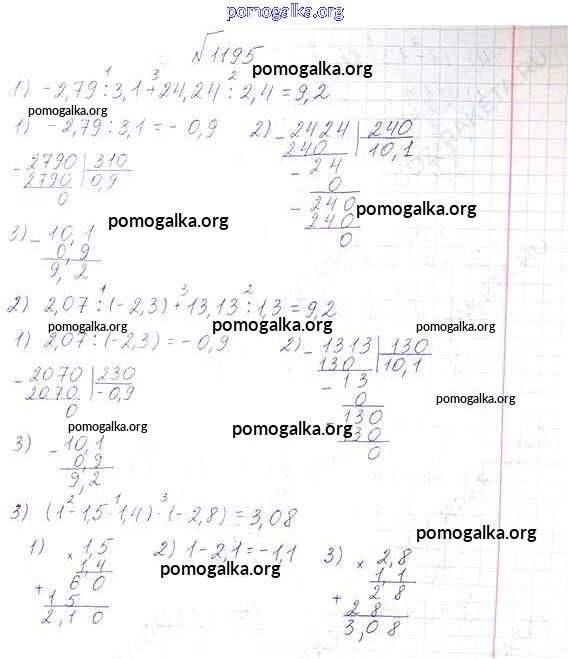 pomogalka.org
№1195
pomogalka.org
1) -2,79 : 3,1 + 24,24 : 2,4 = 9,2
pomogalka.org
1) -2,79 : 3,1 = -0,9
2790 | 310
2790 | 0,9
0
2) 2424 | 240
240 | 10,1
24
0
240
240
0
pomogalka.org
pomogalka.org
3) 10,1
0,9
9,2
2) 2,07 : (-2,3) + 13,13 : 1,3 = 9,2
pomogalka.org pomogalka.org pomogalka.org
1) 2,07 : (-2,3) = -0,9
2070 | 230
2070 | -0,9
0
2) 1313 | 130
130 | 10,1
13
0
130
130
0
pomogalka.org
pomogalka.org pomogalka.org
3) 10,1
0,9
9,2
3) (1 - 1,5 · 1,4) · (-2,8) = 3,08
pomogalka.org
1) × 1,5
1,4
+ 60
15
2,10
2) 1 - 2,1 = -1,1
pomogalka.org
3) × 2,8
1,1
+ 28
28
3,08